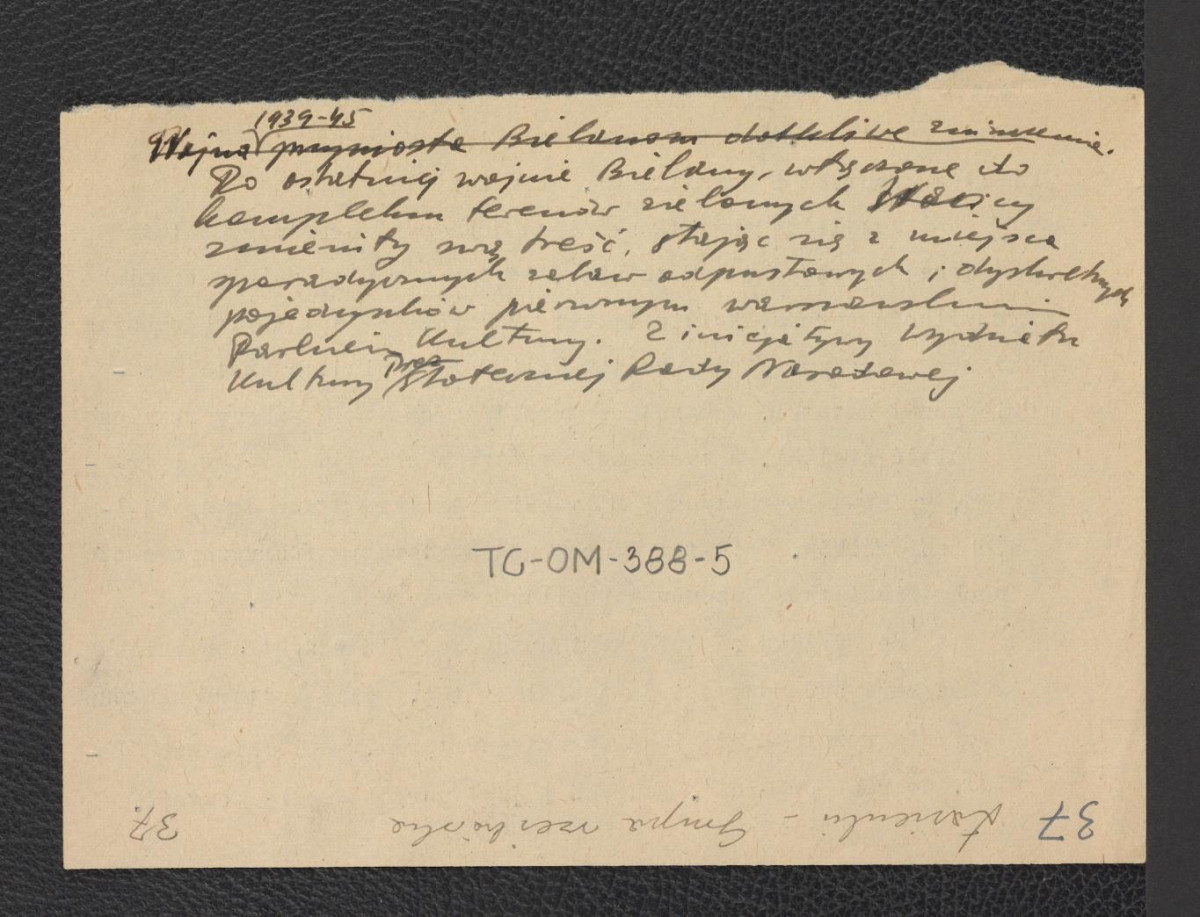 1939-45
Wojna przyniosła Bielanom dotkliwe zniszczenie.
Po ostatniej wojnie Bielany, włączone do
kompleksu terenów zielonych stolicy
zmieniły swą treść, stając się z miejsca
sporadycznych zabaw odpustowych i dyskretnych
pojedynków pierwszym warszawskim
Parkiem Kultury. Z inicjatywy Wydziału
Kultury Prez. Stołecznej Rady Narodowej
TG-OM-388-5
37 Łazienki - Grupa rzeźbiarska 37.